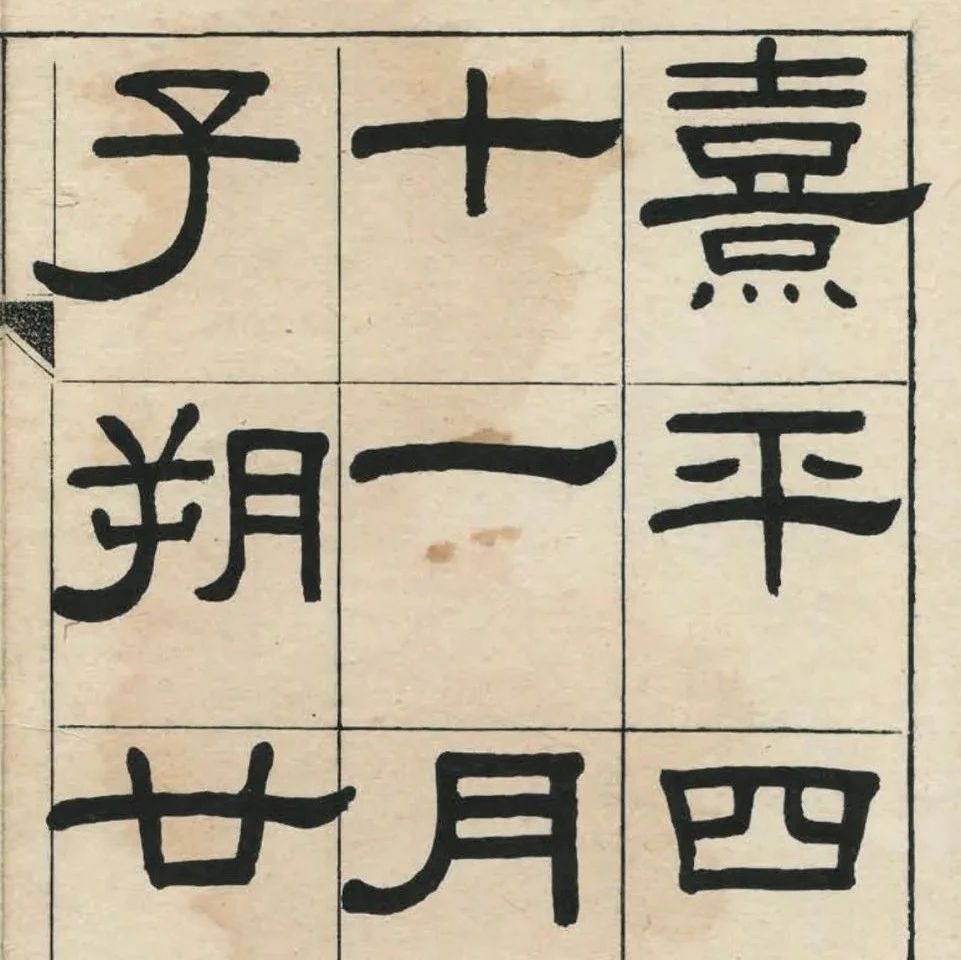 熹平四
十一月
子朔廿